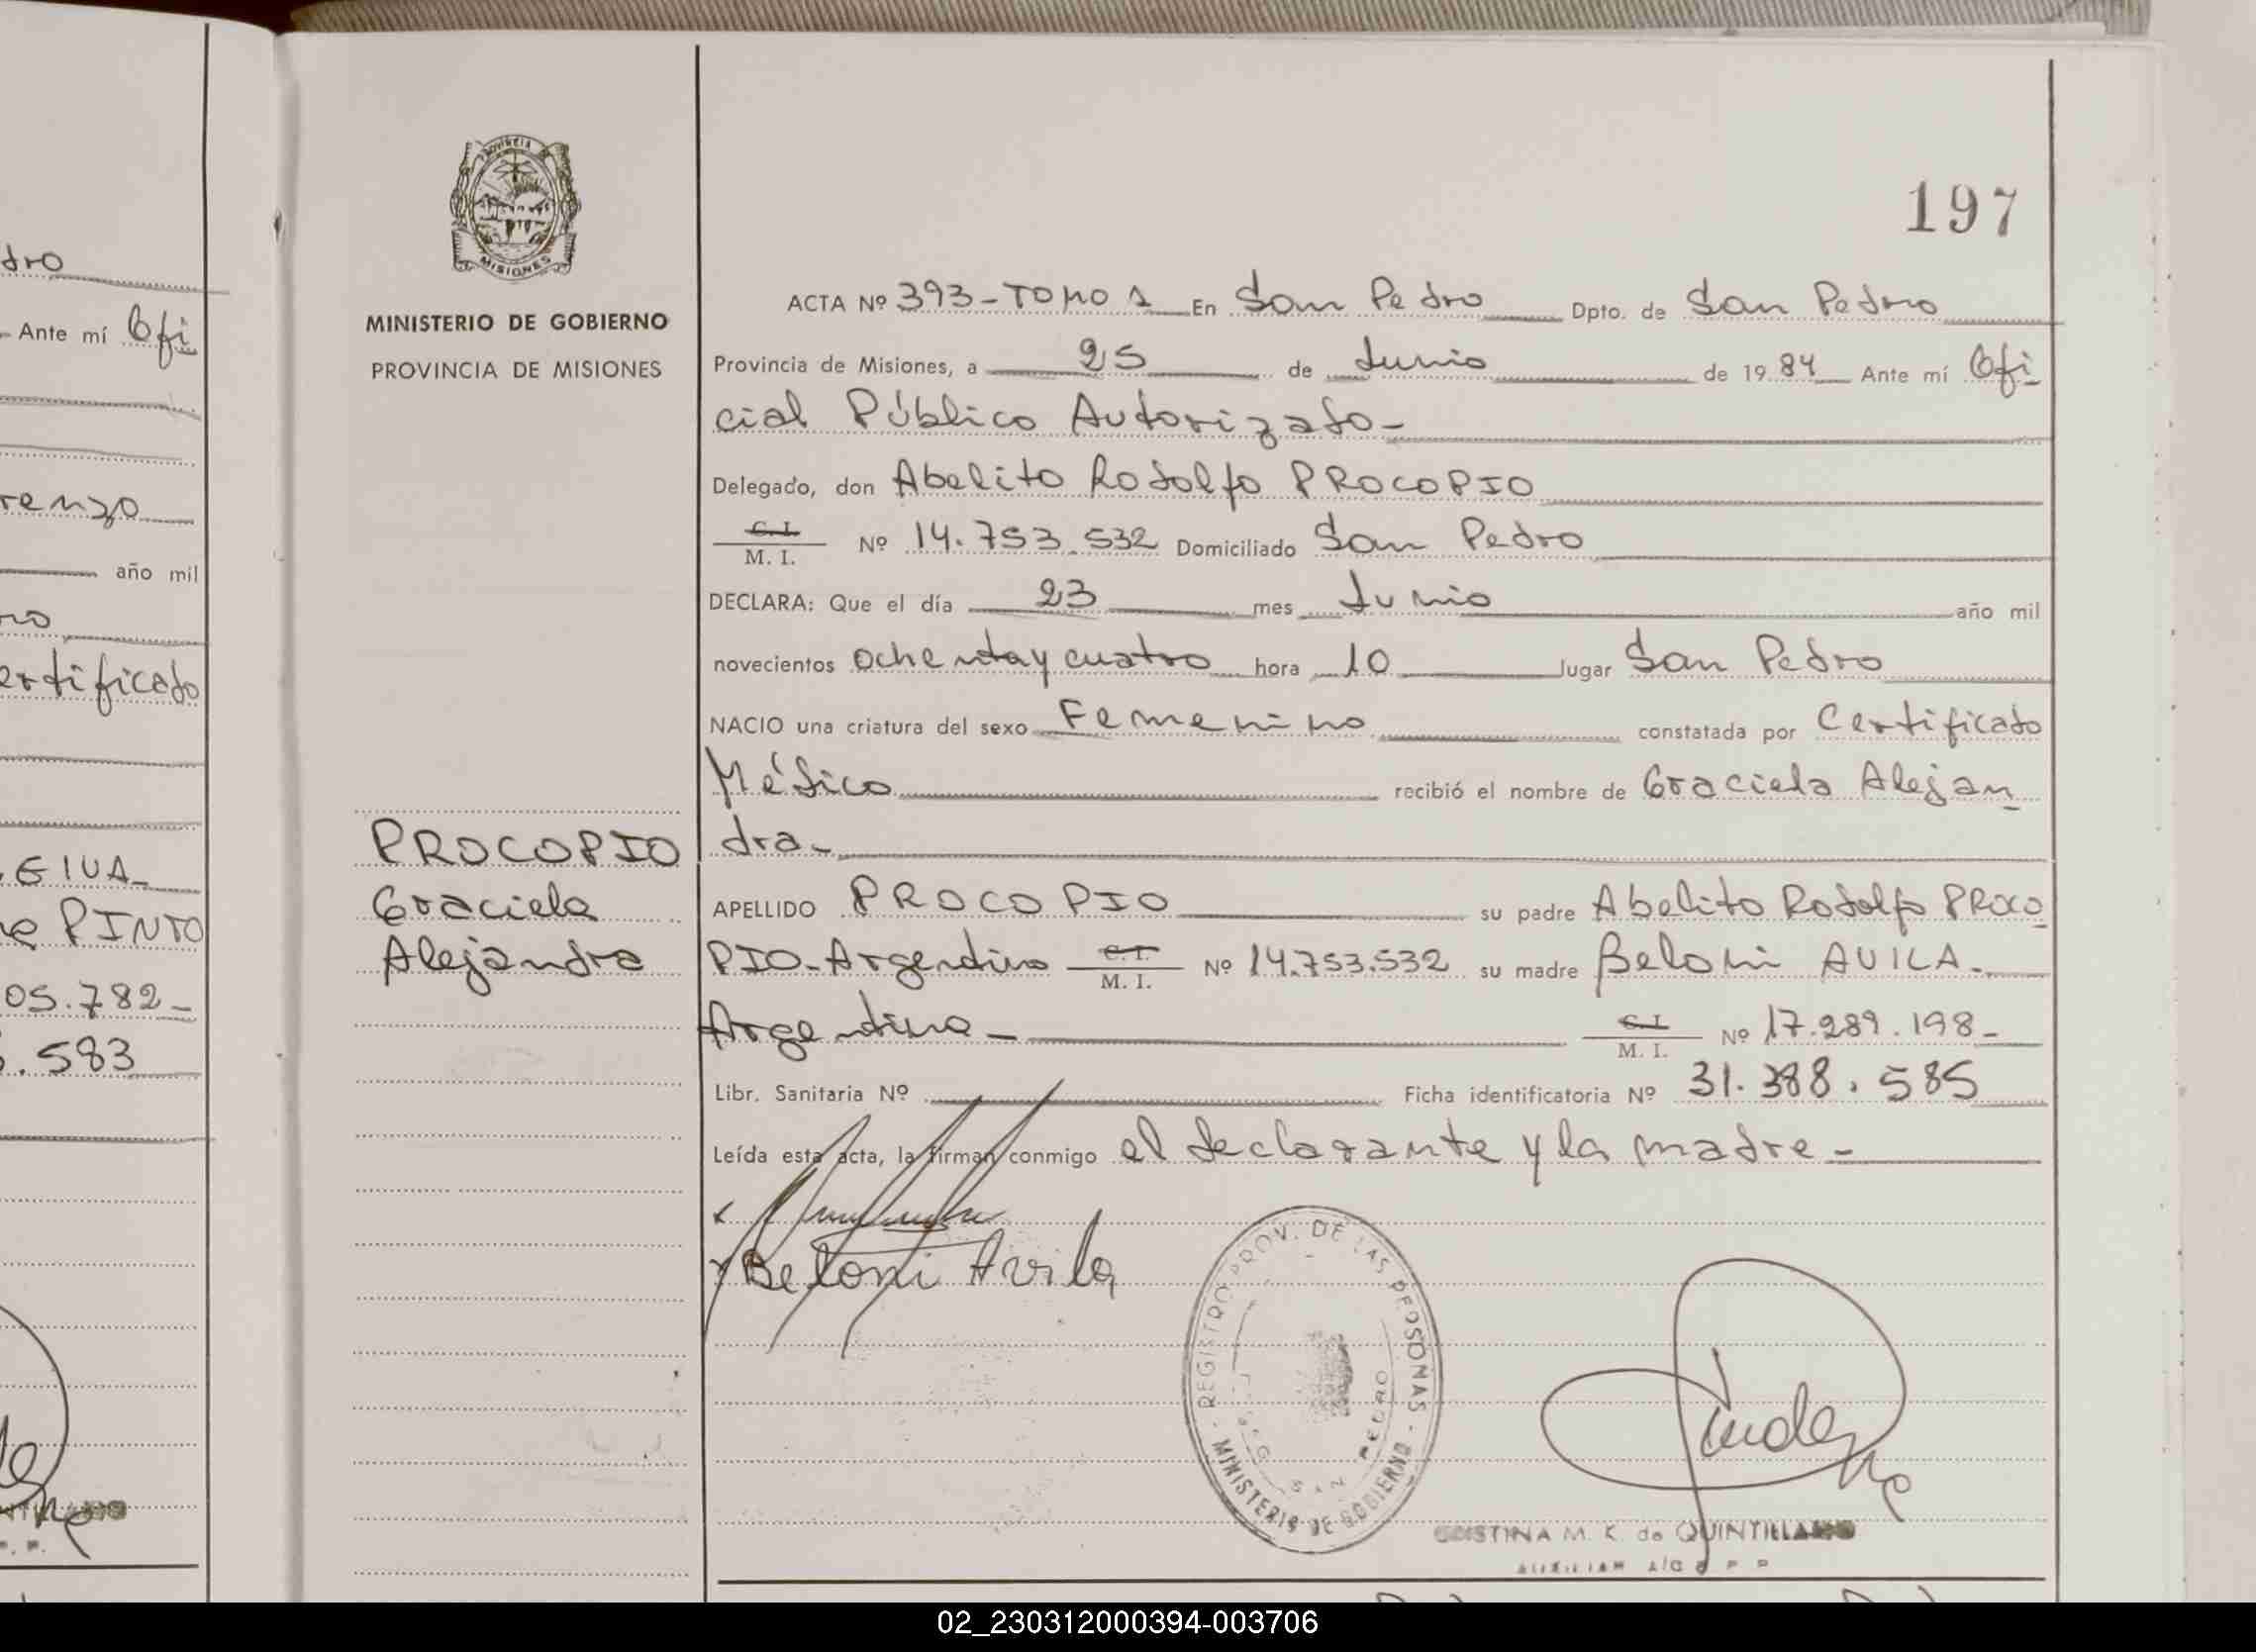 dro
Ante mí Ofi
renzo
año mil
ro
ertificado
EIUA_
e PINTO
05.782_
.583
PROVINCIA DE
MISIONES
MINISTERIO DE GOBIERNO
PROVINCIA DE MISIONES
PROCOPIO
Graciela
Alejandra
197
ACTA Nº 393-TOMO 1 En San Pedro Dpto. de San Pedro
Provincia de Misiones, a 25 de Junio de 1984 Ante mí Ofi
cial Público Autorizado-
Delegado, don Abelito Rodolfo PROCOPIO
C.I.
M. I. Nº 14.753.532 Domiciliado San Pedro
DECLARA: Que el día 23 mes Junio año mil
novecientos ochenta y cuatro hora 10 lugar San Pedro
NACIO una criatura del sexo Femenino constatada por Certificado
Médico recibió el nombre de Graciela Alejan
dra-
APELLIDO PROCOPIO su padre Abelito Rodolfo PROCO
PIO-Argentino C.I. M. I. Nº 14.753.532 su madre Beloni AVILA-
Argentina- C.I. M. I. Nº 17.289.198-
Libr. Sanitaria Nº Ficha identificatoria Nº 31.388.585
Leída esta acta, la firman conmigo el declarante y la madre-
Beloni Avila
REGISTRO PROV. DE LAS PERSONAS
MINISTERIO DE GOBIERNO
SAN PEDRO
CRISTINA M. K. de QUINTILLANO
AUXILIAR
02_230312000394-003706